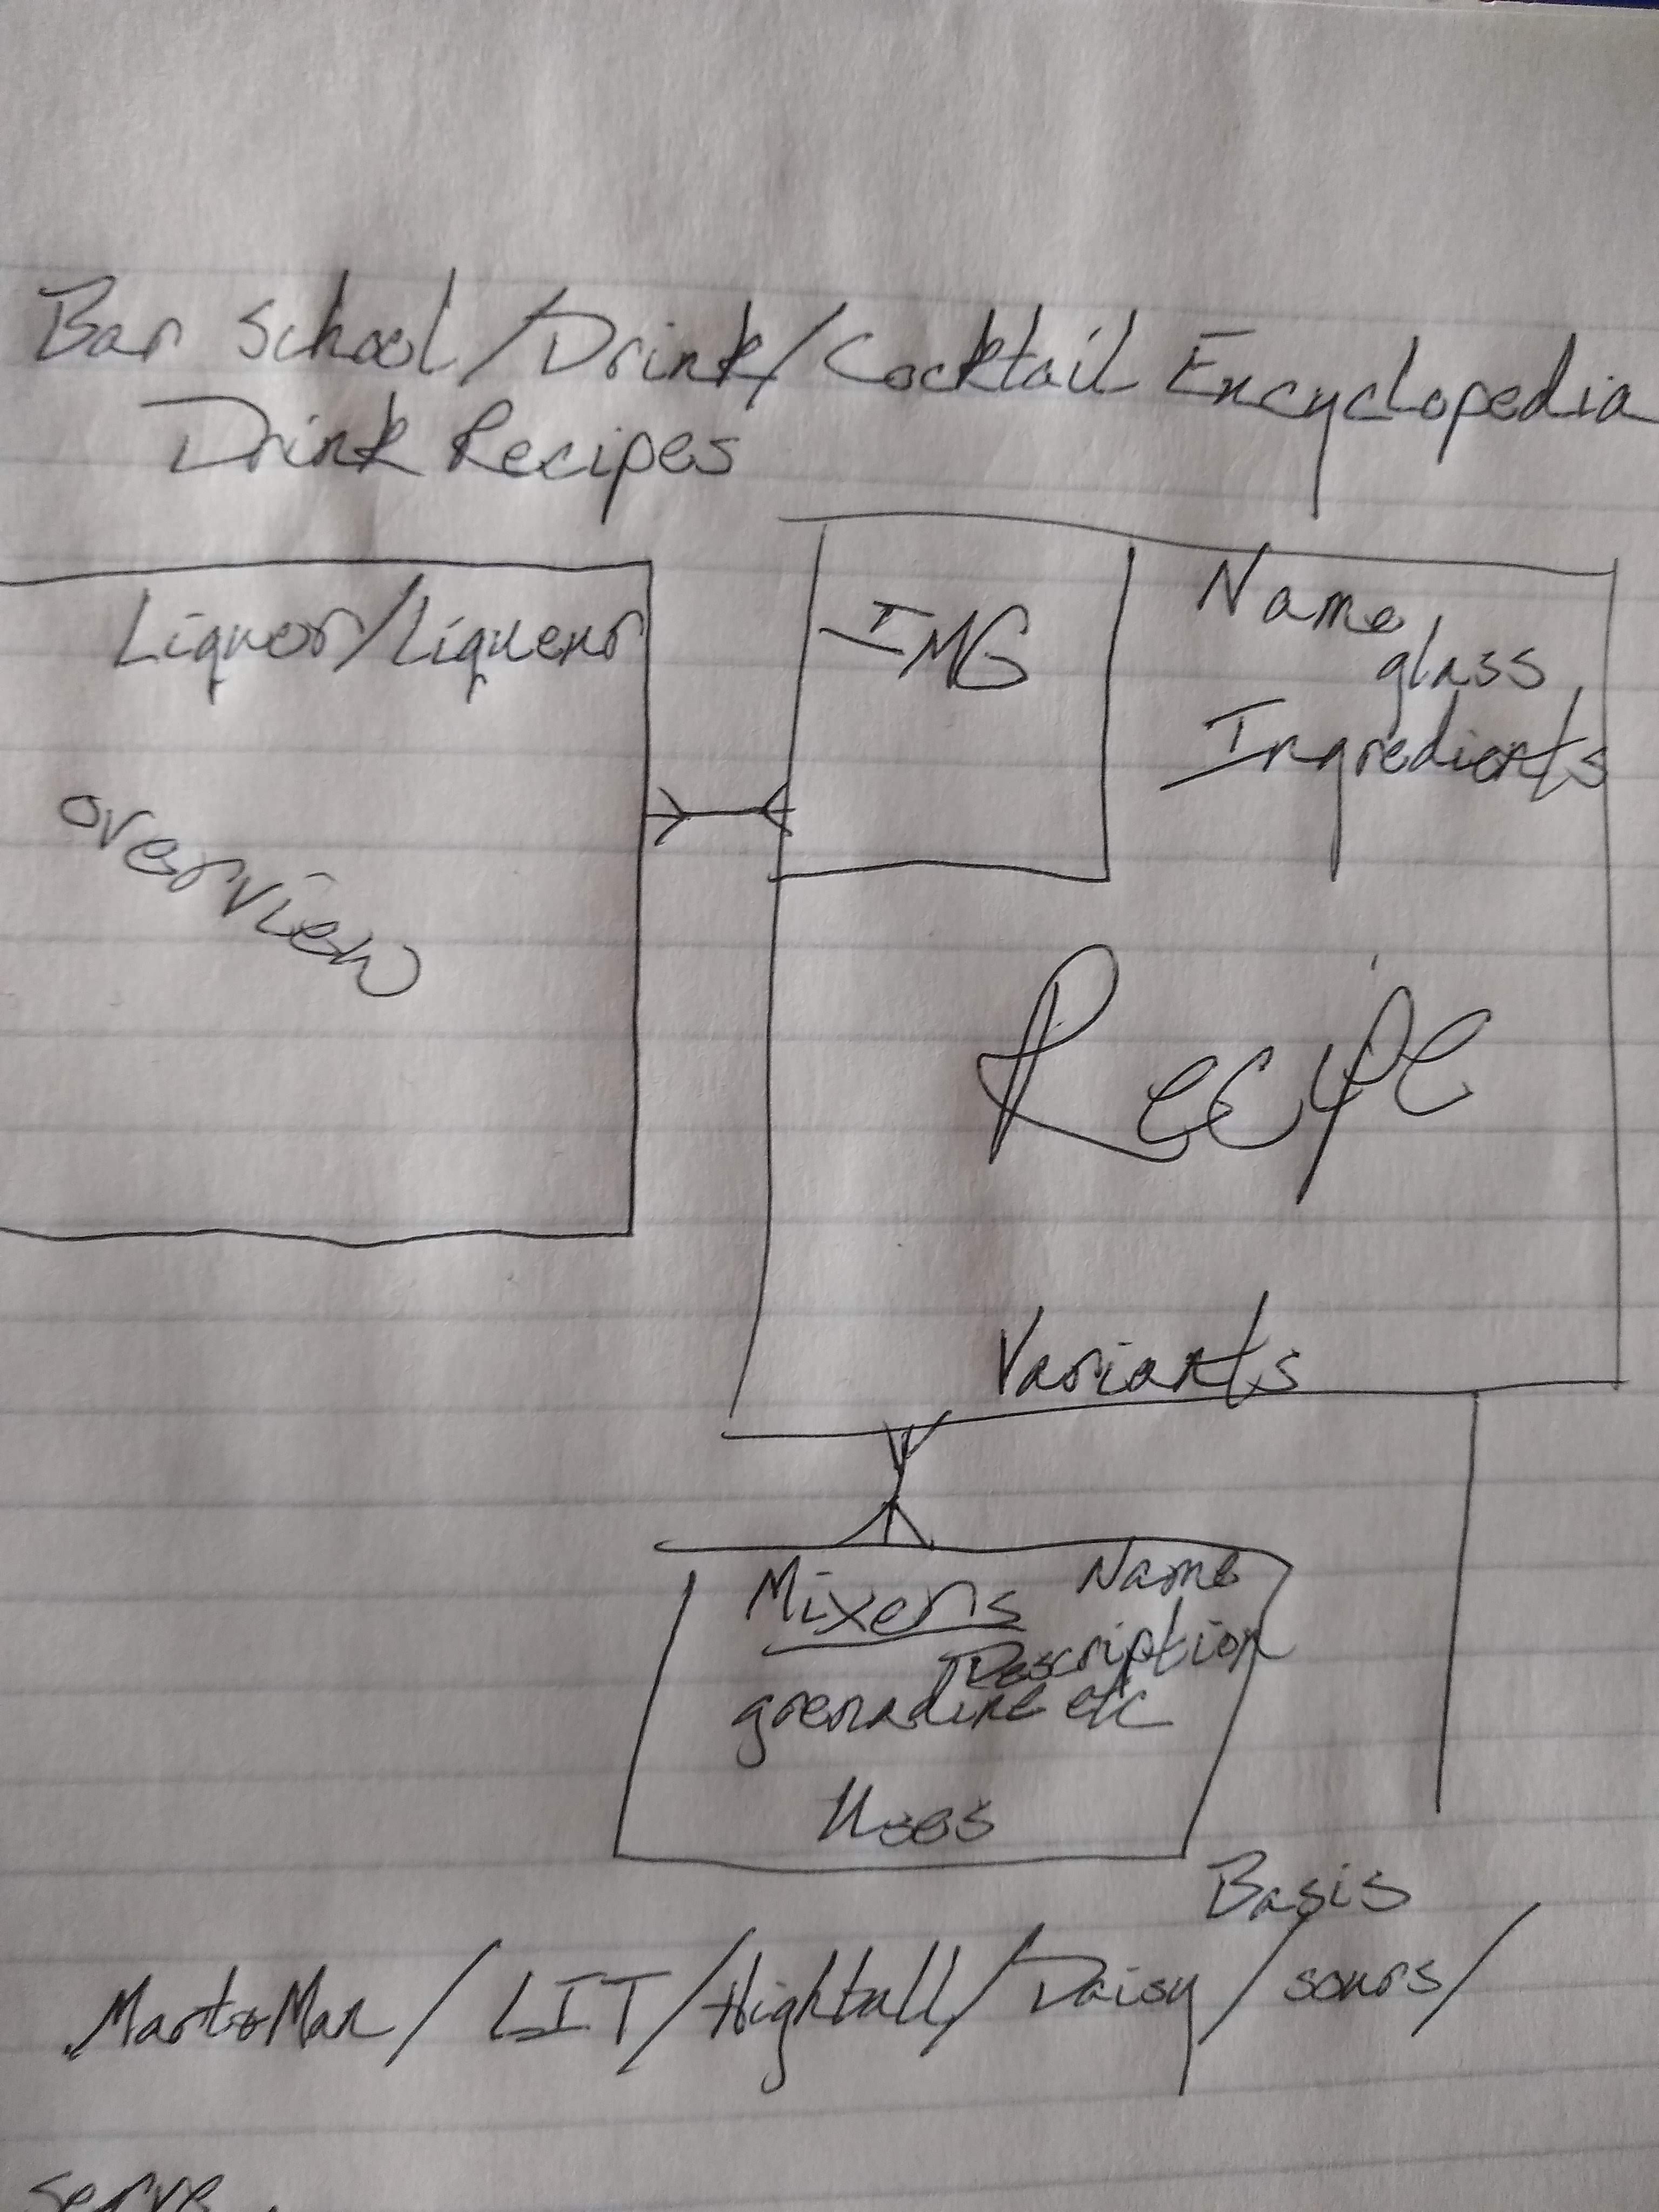 Bar School/Drink/Cocktail Encyclopedia
Drink Recipes
Liquor/Liqueur
overview
IMG
Name
glass
Ingredients
Recipe
Variants
Mixers Name
Description
grenadine etc
Uses
Basis
Mart&Man / LIT/Highball/Daisy/sours/
serve